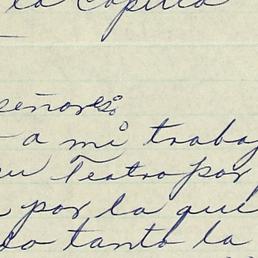 la Capilla
señores:
a mi trabaj
su Teatro por
por la que
do tanto la